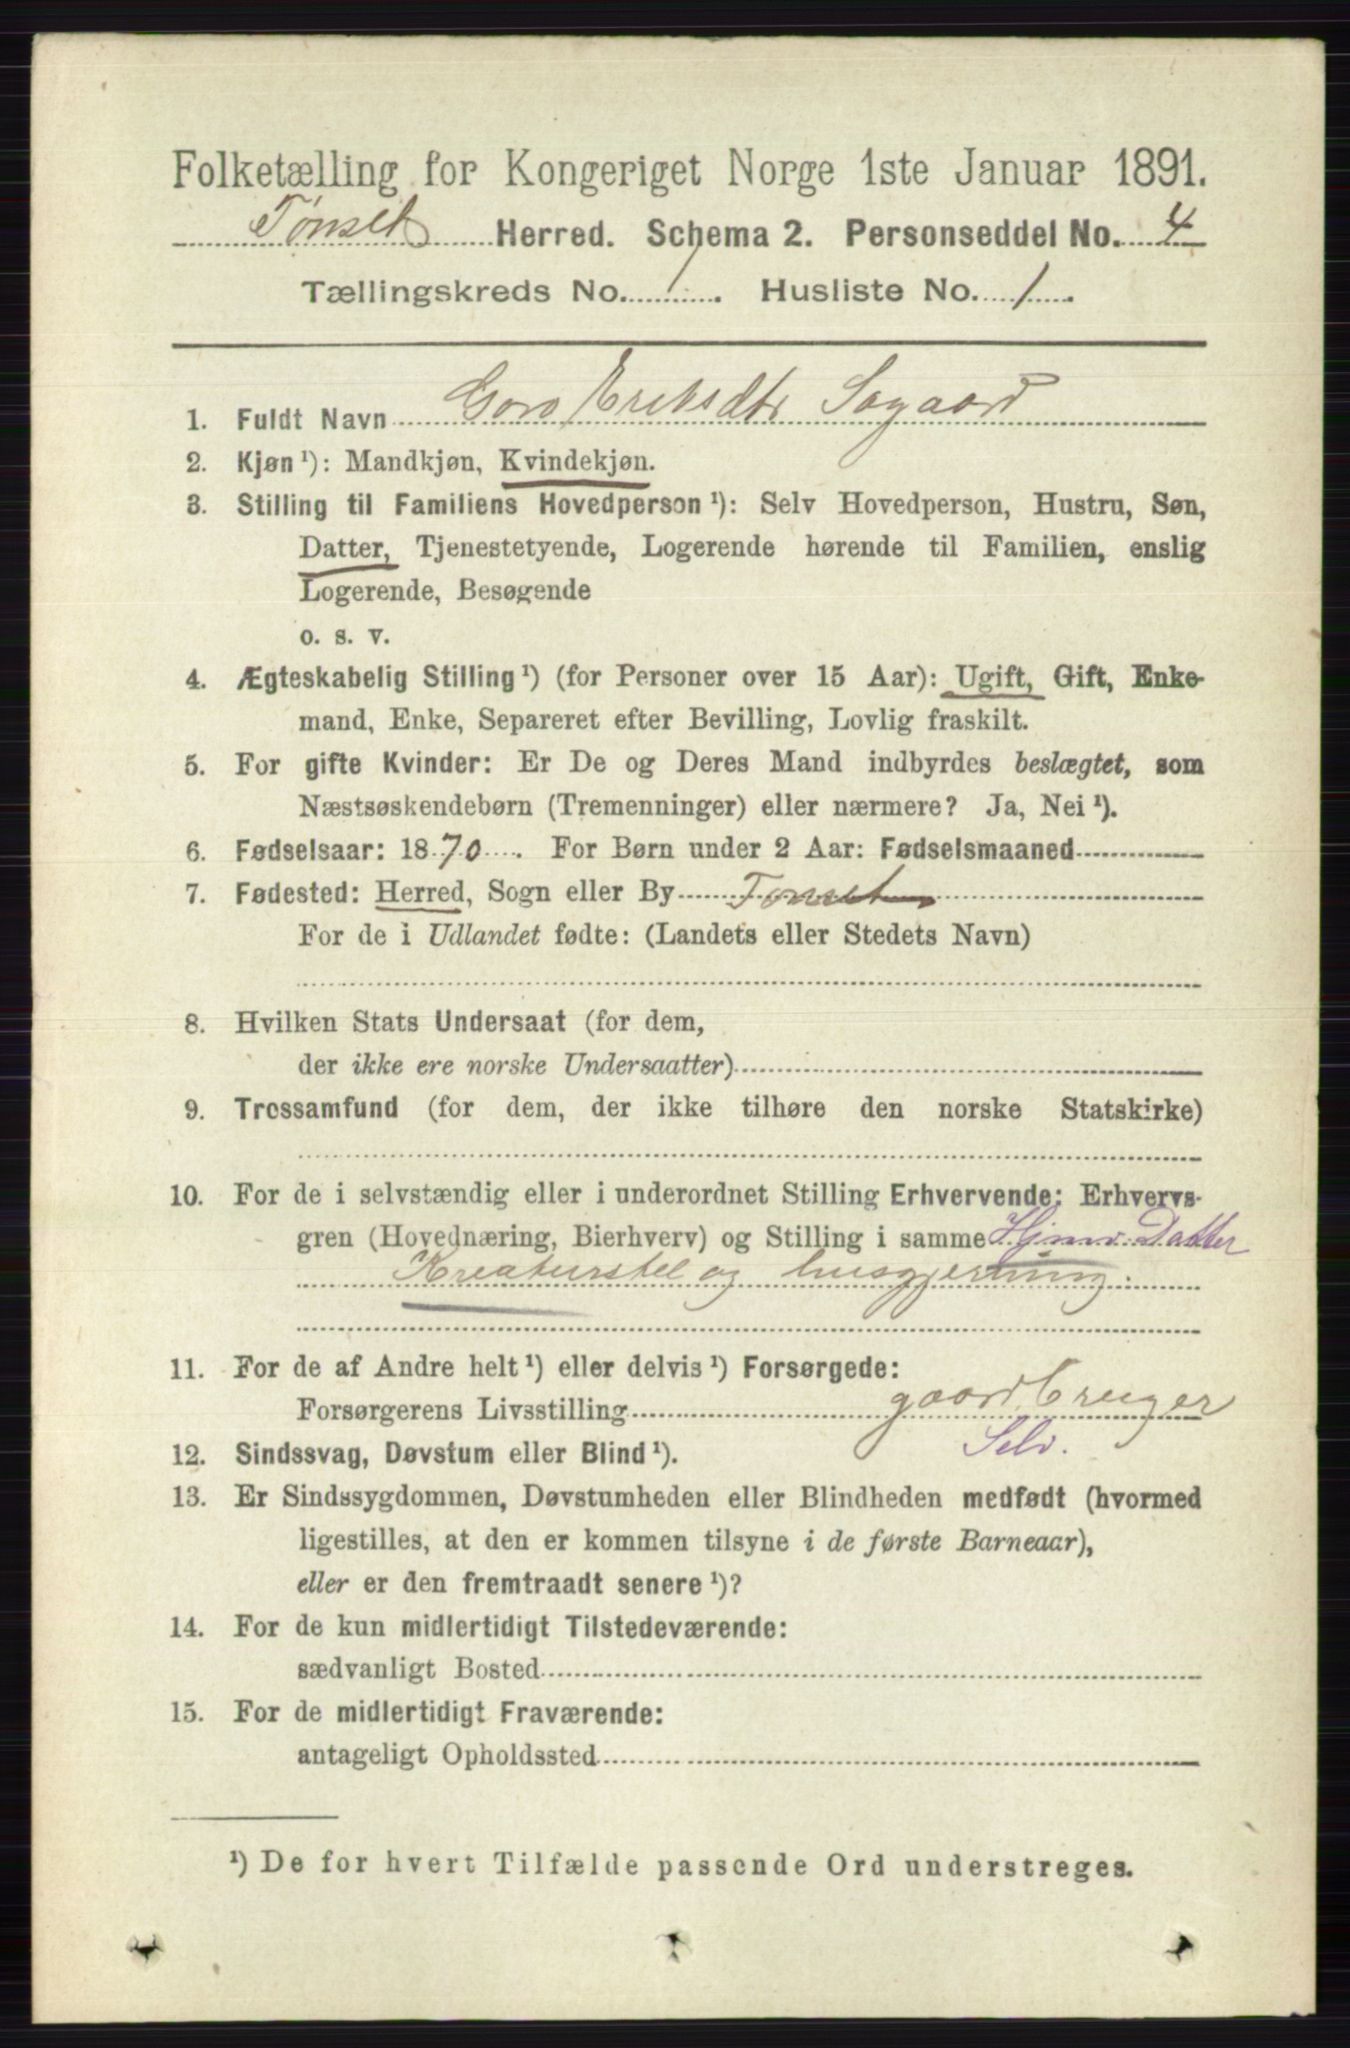 Folketælling for Kongeriget Norge 1ste Januar 1891.
Tønset Herred. Schema 2. Personseddel No. 4
Tællingskreds No. 1. Husliste No. 1.
1. Fuldt Navn Goro Eriksdtr Sagaard
2. Kjøn ¹): Mandkjøn, Kvindekjøn.
3. Stilling til Familiens Hovedperson ¹): Selv Hovedperson, Hustru, Søn,
Datter, Tjenestetyende, Logerende hørende til Familien, enslig
Logerende, Besøgende
o. s. v.
4. Ægteskabelig Stilling ¹) (for Personer over 15 Aar): Ugift, Gift, Enke-
mand, Enke, Separeret efter Bevilling, Lovlig fraskilt.
5. For gifte Kvinder: Er De og Deres Mand indbyrdes beslægtet, som
Næstsøskendebørn (Tremenninger) eller nærmere? Ja, Nei ¹).
6. Fødselsaar: 1870. For Børn under 2 Aar: Fødselsmaaned
7. Fødested: Herred, Sogn eller By Tønset
For de i Udlandet fødte: (Landets eller Stedets Navn)
8. Hvilken Stats Undersaat (for dem,
der ikke ere norske Undersaatter)
9. Trossamfund (for dem, der ikke tilhøre den norske Statskirke)
10. For de i selvstændig eller i underordnet Stilling Erhvervende: Erhvervs-
gren (Hovednæring, Bierhverv) og Stilling i samme Hjmv. Datter
Kreaturstel og husgjerning.
11. For de af Andre helt ¹) eller delvis ¹) Forsørgede:
Forsørgerens Livsstilling gaardbruger
Selv.
12. Sindssvag, Døvstum eller Blind ¹).
13. Er Sindssygdommen, Døvstumheden eller Blindheden medfødt (hvormed
ligestilles, at den er kommen tilsyne i de første Barneaar),
eller er den fremtraadt senere ¹)?
14. For de kun midlertidigt Tilstedeværende:
sædvanligt Bosted
15. For de midlertidigt Fraværende:
antageligt Opholdssted
¹) De for hvert Tilfælde passende Ord understreges.